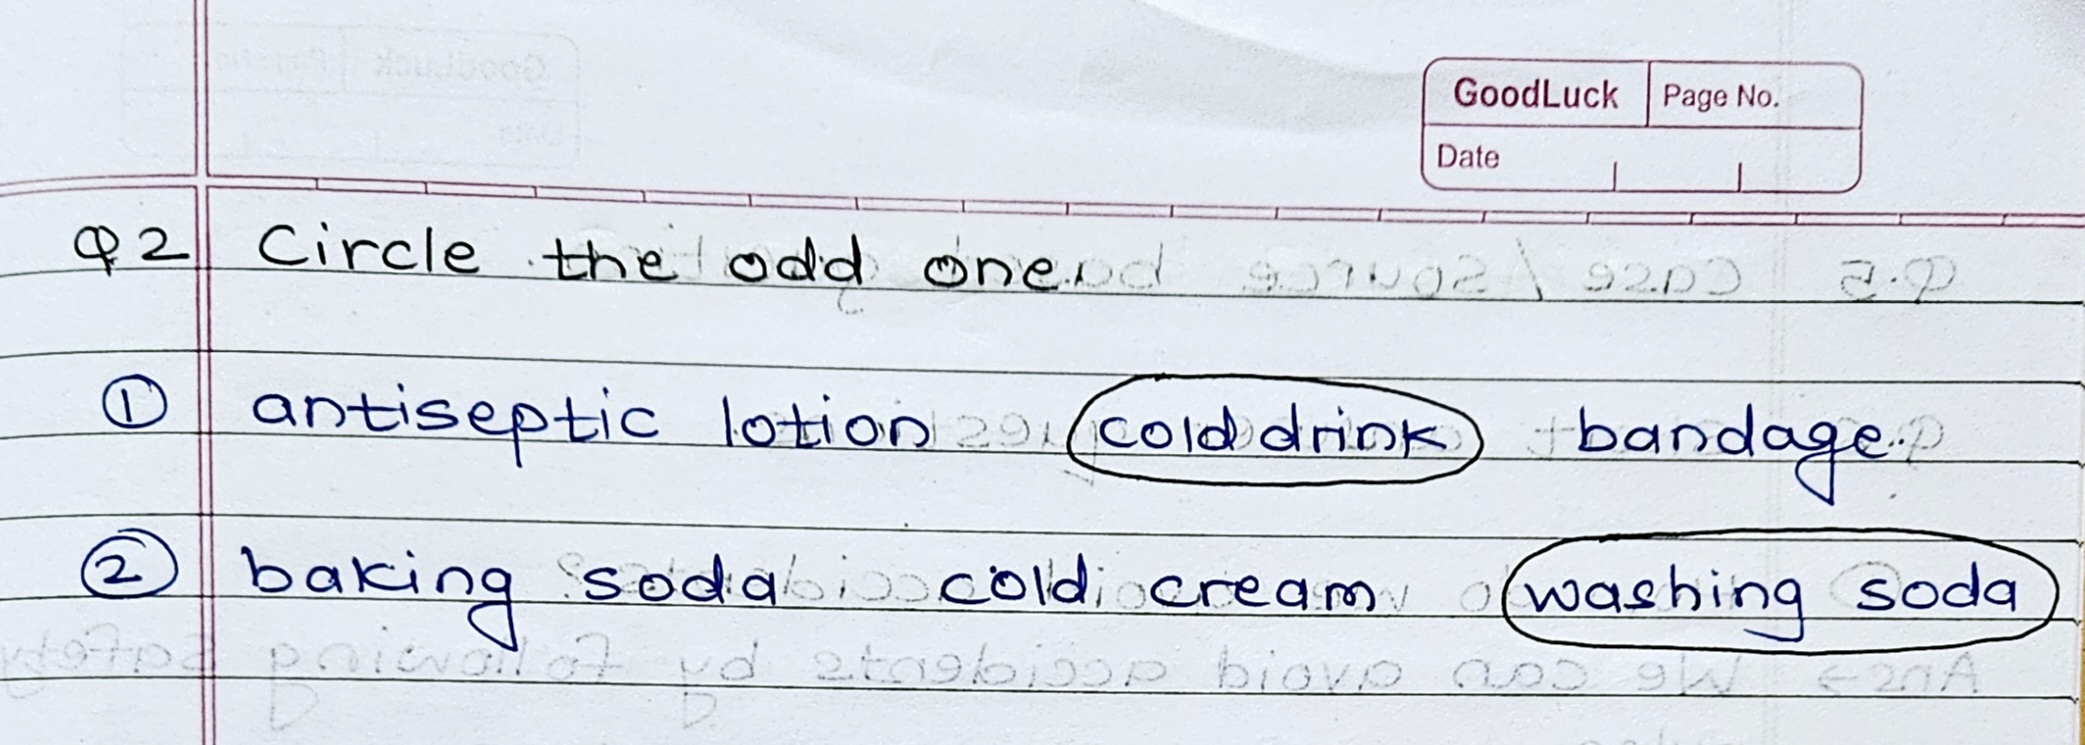 GoodLuck Page No.
Date
Q2 Circle the odd one.
① antiseptic lotion cold drink bandage.
② baking soda cold cream washing soda